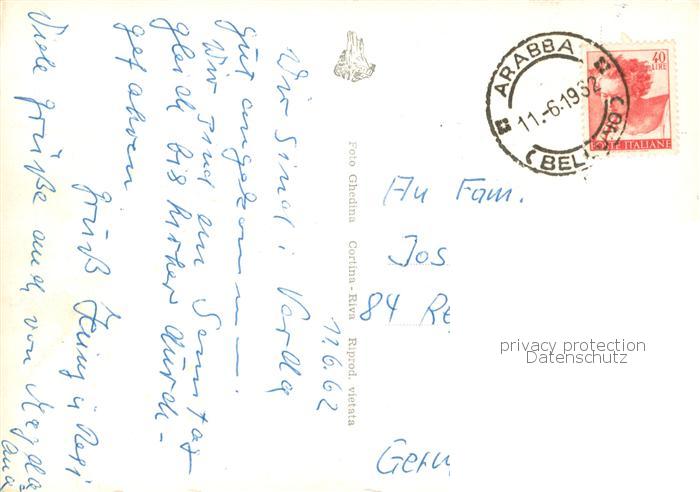 11.6.62
Wir sind i
gut angekommen.
Wir sind am Samstag
gleich bis hierher durch-
gefahren
Gruß
Viele Grüße auch von Magda
Foto Ghedina Cortina - Riva Riprod. vietata
ARABBA
11.-6.1962
(BELL
40
LIRE
POSTE ITALIANE
An Fam.
Jos
84 Re
Germ
privacy protection
Datenschutz